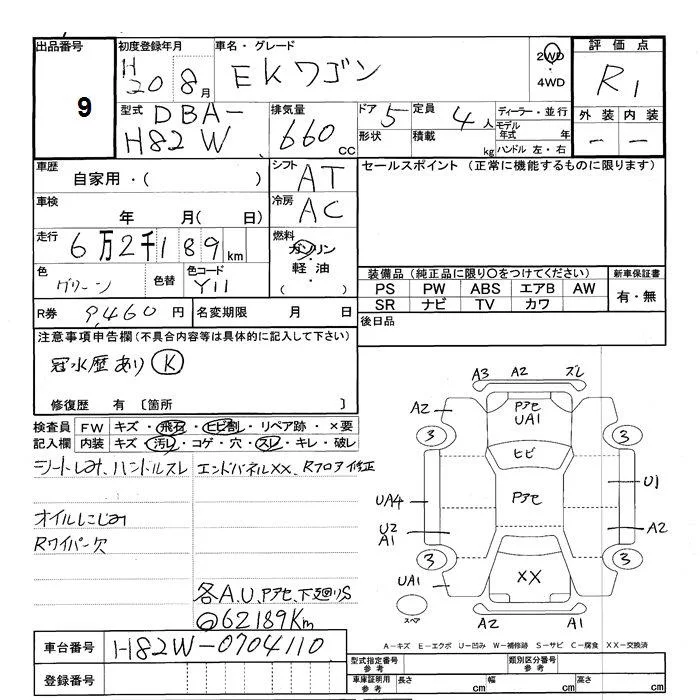 出品番号 初度登録年月 車名・グレード 評価点
9 H20 8月 EKワゴン 2WD・4WD R1
外装 内装
— —
型式 DBA-H82W 排気量 660cc ドア 5 定員 4人 ディーラー・並行
形状 積載 kg モデル年式 年
ハンドル 左・右
車歴 自家用・( ) シフト AT セールスポイント(正常に機能するものに限ります)
車検 年 月( 日) 冷房 AC
走行 6万2千189km 燃料 ガソリン・軽油・( )
色 グリーン 色替 色コード Y11
装備品(純正品に限り○をつけてください) 新車保証書
PS PW ABS エアB AW 有・無
SR ナビ TV カワ
R券 9,460円 名変期限 月 日 後日品
注意事項申告欄(不具合内容等は具体的に記入して下さい)
冠水歴あり K
修復歴 有 〔箇所 〕
検査員記入欄 FW キズ・飛石・ヒビ割・リペア跡・×要
内装 キズ・汚レ・コゲ・穴・スレ・キレ・破レ
シートしみ、ハンドルスレ エンドパネルXX、Rフロア修正
オイルにじみ
Rワイパー欠
各A.U.Pアセ、下廻りS
62189Km
A3 A2 ズレ
A2 Pアセ UA1
3 3
ヒビ
UA4 Pアセ U1
U2 A1 A2
3 3
UA1 XX
スペア A2 A1
A-キズ E-エクボ U-凹み W-補修跡 S-サビ C-腐食 XX-交換済
車台番号 H82W-0704110
型式指定番号 参考 類別区分番号 参考
登録番号 車庫証明用 参考 長さ cm 幅 cm 高さ cm